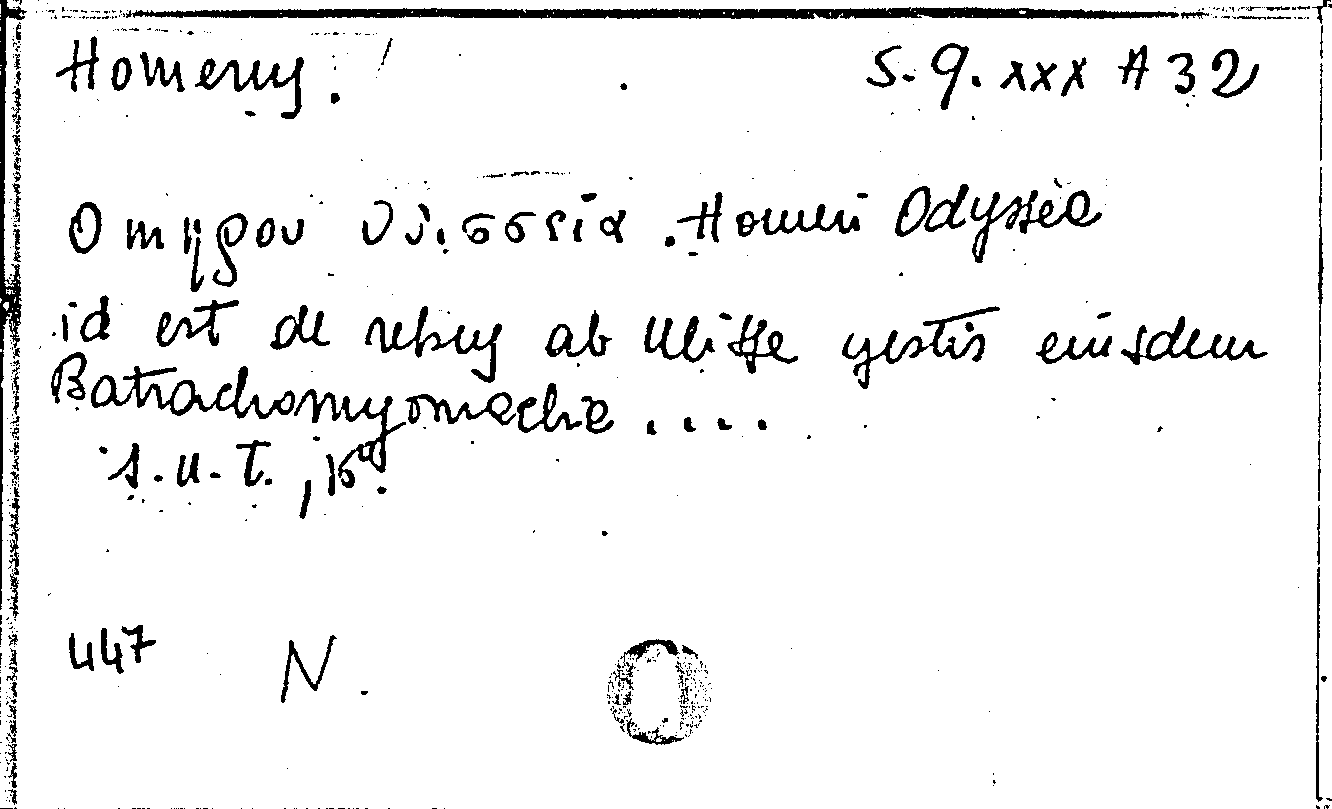 Homerus. S. q. xxx A 32
Omηρου Homeri Odyssea
id est de rebus ab Ulisse gestis eiusdem
Batrachomyomachia ....
s.u.t., 16°.
447 N.